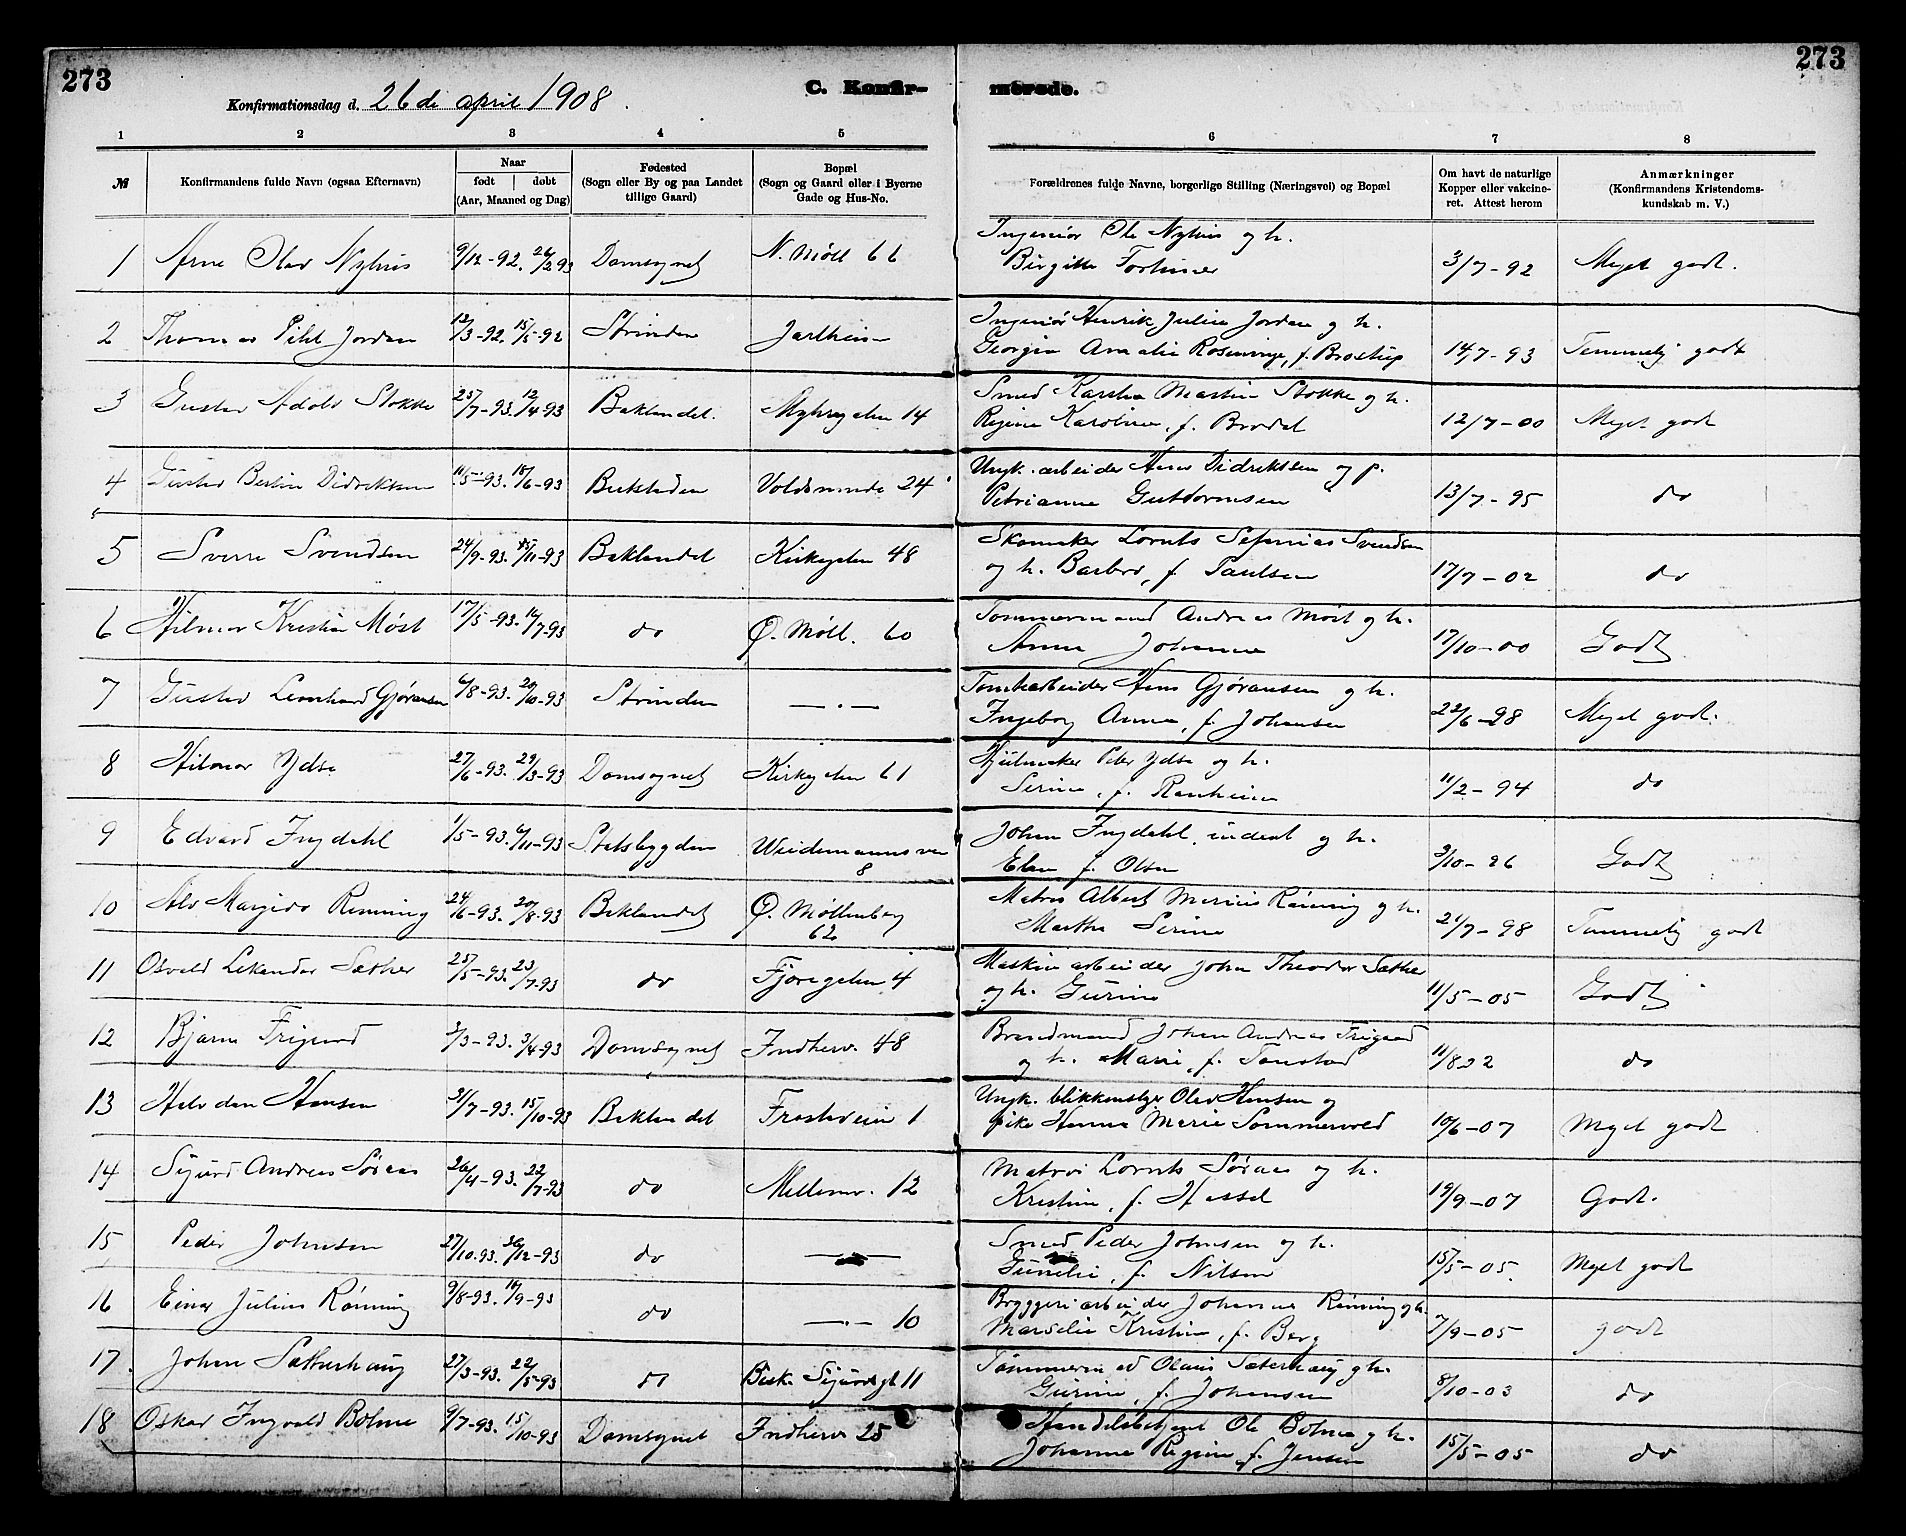 273
273
Konfirmationsdag d. 26de april 1908.
C. Konfir-
merede.
1 2 3 4 5 6 7 8
№
Konfirmandens fulde Navn (ogsaa Efternavn)
Naar
født | døbt
(Aar, Maaned og Dag)
Fødested
(Sogn eller By og paa Landet
tillige Gaard)
Bopæl
(Sogn og Gaard eller i Byerne
Gade og Hus-No.
Forældrenes fulde Navne, borgerlige Stilling (Næringsvei) og Bopæl
Om havt de naturlige
Kopper eller vakcine-
ret. Attest herom
Anmærkninger
(Konfirmandens Kristendoms-
kundskab m. V.)
1 Arne Olav Nyhus 9/12-92. 26/2 93 Domsognet N. Møll 66
Ingeniør Ole Nyhus og h.
Birgitte 3/7-92 Meget godt.
2 Thomas Pihl Jordan 12/3-92. 15/5-92 Strinden Jarlheim
Ingeniør Henrik Julius Jordan og h.
Georgine Amalie f. 14/7-93 Temmelig godt
3 Gustav Adolf Stokke 25/7-93. 12/4-93 Baklandet. 14
Smed Martin Stokke og h.
Regine Karoline, f. 12/7-00 Meget godt
4 Gustav Didriksen 11/5-93. 18/6-93 Baklandet Voldsminde 24
Ungk. arbeider Hans Didriksen og p.
Petrianna Guttormsen 13/7-95 do
5 Sverre Svendsen 24/9-93. 11-93 Baklandet Kirkegaten 48
Skomaker Lornts Svendsen
og h. Barbro, f. Paulsen 17/7-02 do
6 Hilmar Kristian Møst 17/5-93. 16/7-93 do Ø. Møll. 60
Tømmermand Andreas Møst og h.
Anna Johanna 17/10-00 Godt
7 Gustav Lenhard Gjøransen 6/8-93. 29/10-93 Strinden —.—
Tomtearbeider Hans Gjøransen og h.
Ingeborg Anna, f. Johansen 22/6-98 Meget godt.
8 Hilmar Ydse 27/6-93. Domsognet Kirkegaten 61
Hjulmaker Peter Ydse og h.
Serine, f. Ranheim 11/2-94 do
9 Edvard Ingdahl 1/5-93. 11-93 Stadsbygden Weidemannsvei
8
Johan Ingdahl, og h.
Elen f. Olsen Godt
10 Alv Margido Rønning 24/6-93. 20/8-93 Baklandet Ø. Møllenberg
62
Matros Albert Marius Rønning og h.
Martha Serine 21/7-98 Temmelig godt
11 Osvald Sæther 25/5-93. 23/7-93 do Fjæregaten 4
Maskinarbeider John Theodor Sæther
og h. Gurine 11/5-05 Godt
12 Bjarne Frigaard 3/3-93. 3/4-93 Domsognet Indherv. 48
Brandmand Johan Andreas Frigaard
og h. Marie, f. do
13 Halvdan Hansen 31/7-93. 15/10-93 Baklandet Frostaveien 1
Ungk. blikkenslager Olav Hansen og
pike Hanna Marie Sommervold 10/6-07 Meget godt
14 Sigurd Andreas Søraas 26/4-93. 22/7-93 do Mellemv. 12
Matros Lornts Søraas og h.
Kristine, f. Hassel 19/9-07 Godt.
15 Peder Johnsen 27/10-93. 26/12-93 do —
Smed Peder Johnsen og h.
f. Nilsen 15/5-05. Meget godt
16 Einar Julius Rønning 9/8-93. 18/9-93 do —.— 10
Bryggeriarbeider Johannes Rønning og h.
Marselie Kristine, f. Berg 7/9-05 godt
17. Johan Sætterhaug 27/3-93. 22/5-93 do Bisk. Sigurdsgt 11
Tømmermand Olaus Sæterhaug og h.
Gurine, f. Johansen 8/10-03 do
18 Oskar Ingvald Bolme 9/7-93. 15/10-93 Domsognet Indherv. 25
Handelsbetjent Ole Bolme og h.
Johanna Regine, f. Jensen 15/5-05 do